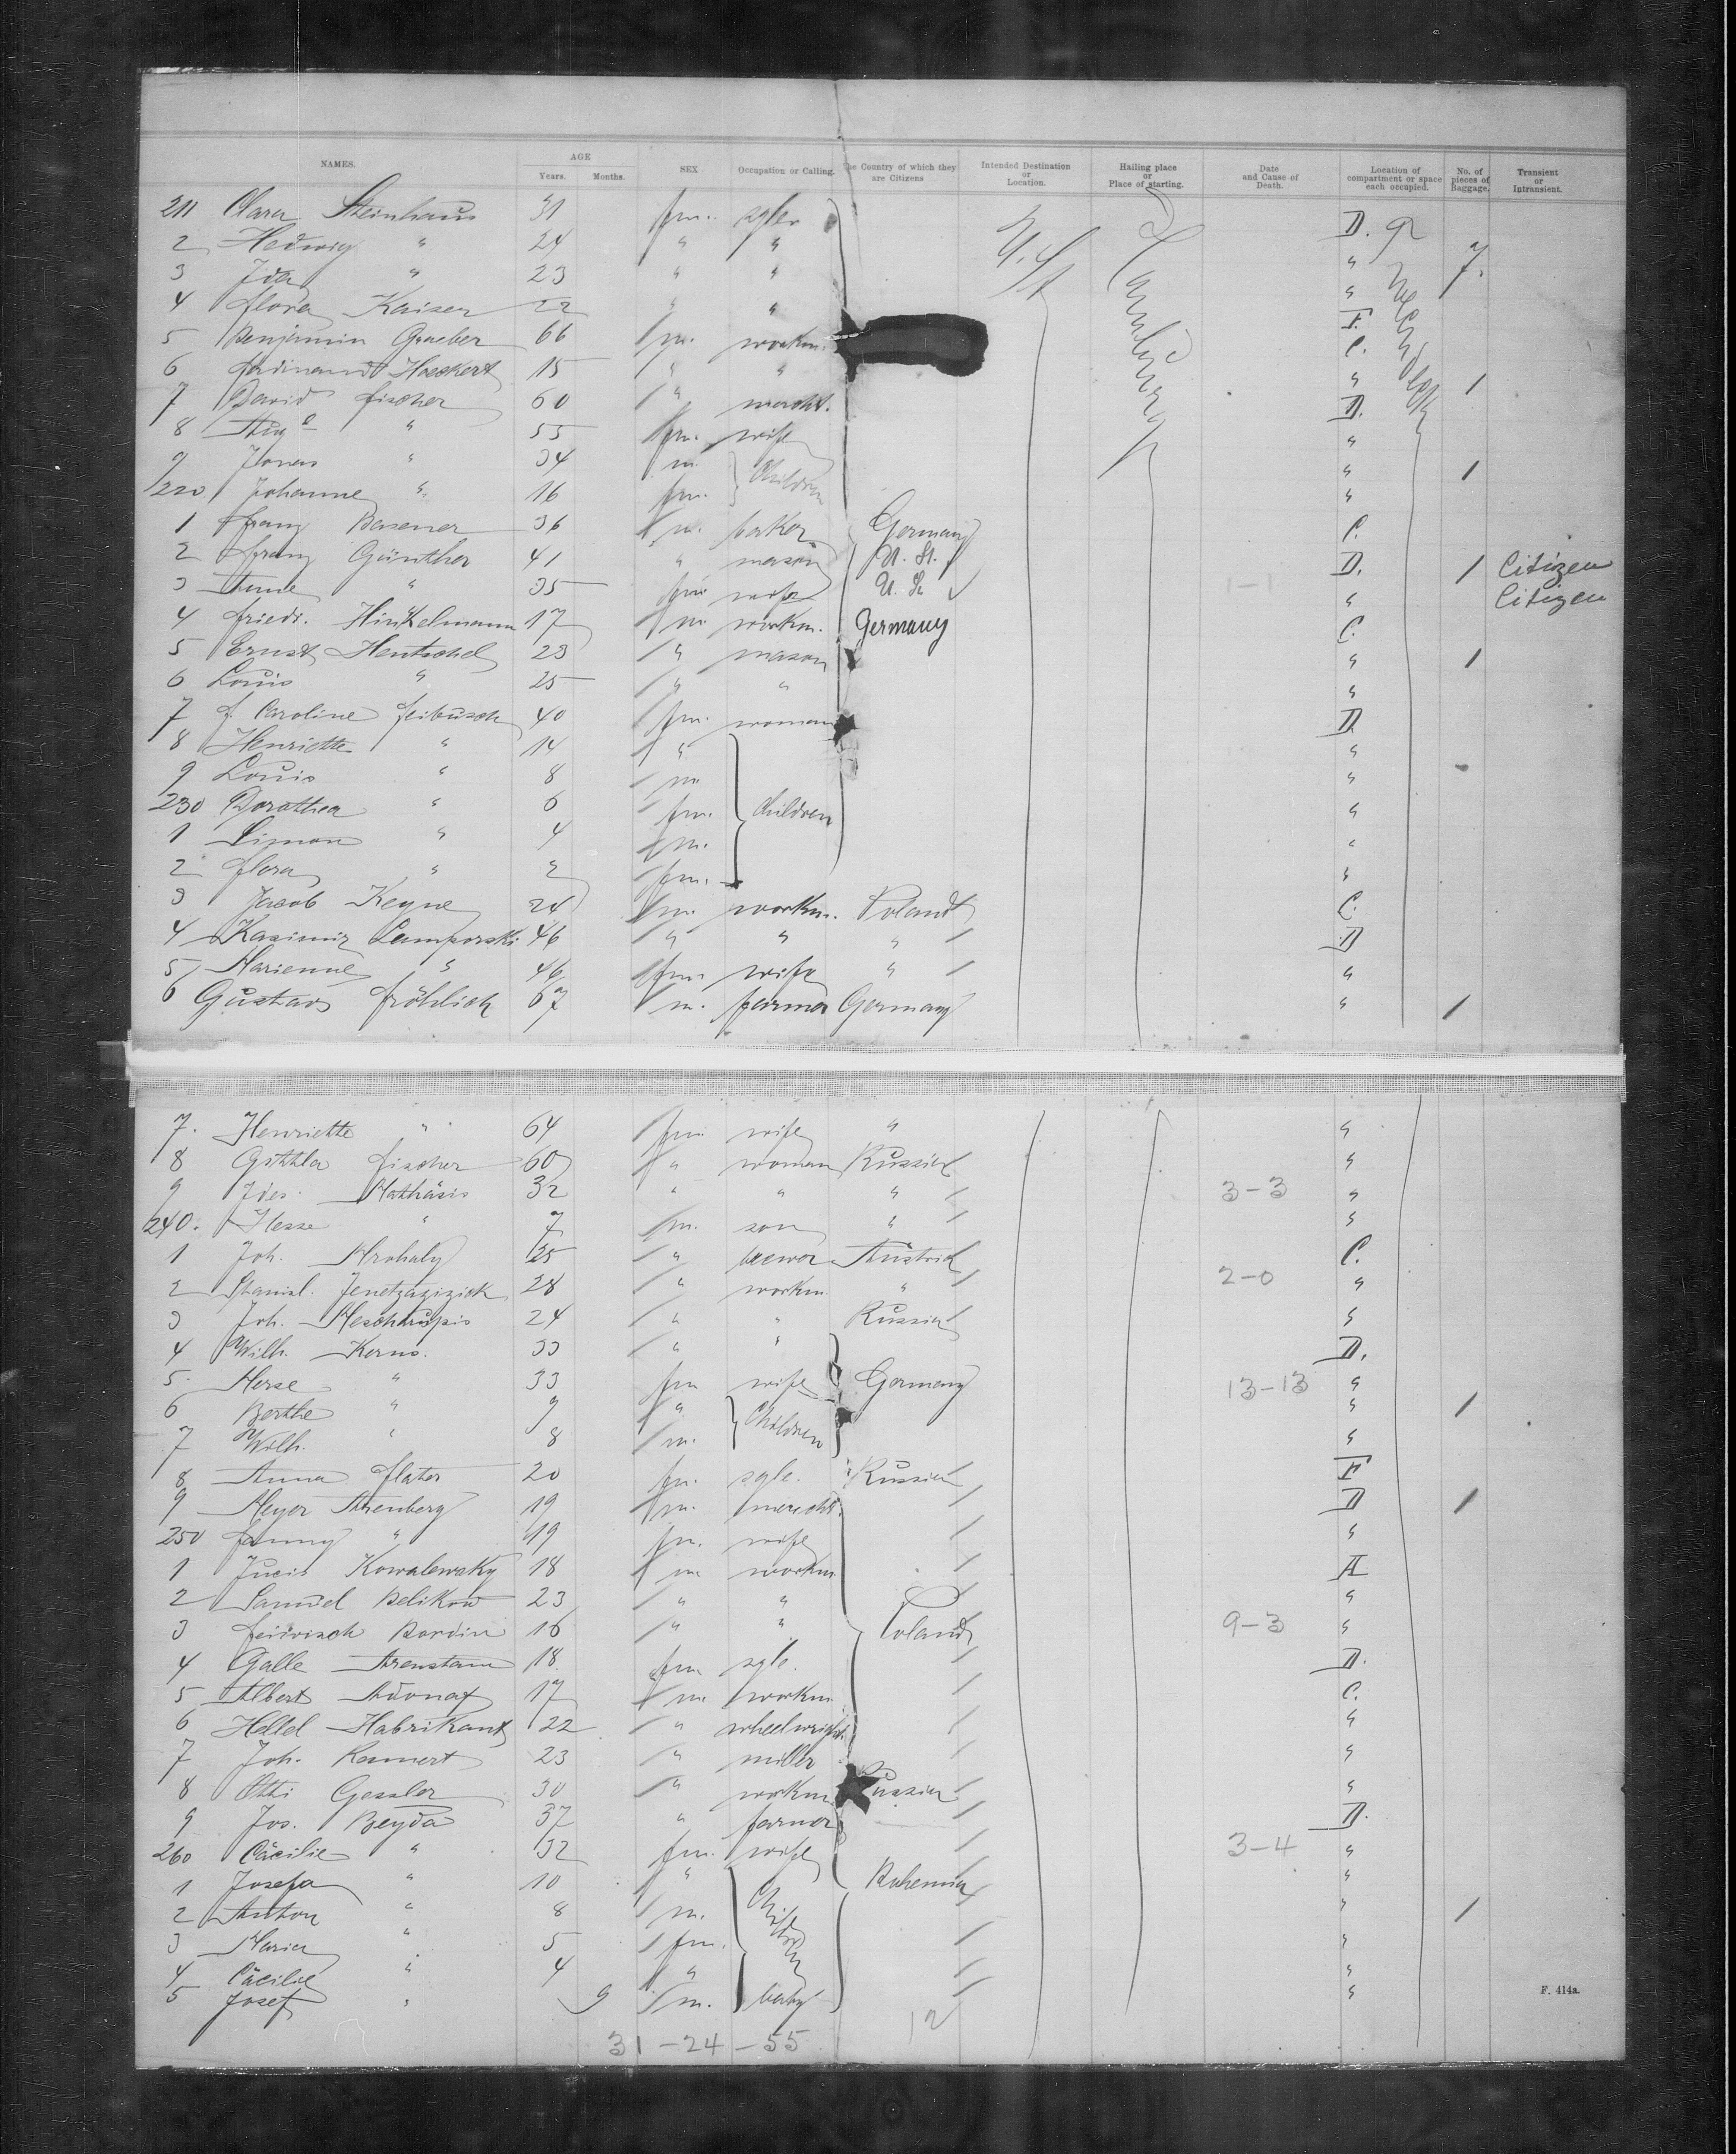 NAMES. AGE Years. Months. SEX Occupation or Calling. The Country of which they are Citizens Intended Destination or Location. Hailing place or Place of starting. Date and Cause of Death. Location of compartment or space each occupied. No. of pieces of Baggage. Transient or Intransient.
211 Clara Steinhaus 31 fm. sgle D.
2 Hedwig " 24 " " " 7.
3 Ida " 23 " " "
4 Flora Kaiser 22 " " F.
5 Benjamin Graeber 66 m. workm. C.
6 Ferdinand Hoeckert 15 " " " 1
7 David Fischer 60 " mercht. D.
8 " 55 fm. wife "
9 Jonas " 34 m. Children " 1
220 Johanne " 16 fm. "
1 Franz Basener 36 m. baker Germany C.
2 Franz Günther 41 " mason U. St. D. 1 Citizen
3 Anne " 35 fm wife U. St 1-1 " Citizen
4 Friedr. Hinkelmann 17 m workm. Germany C.
5 Ernst Hentschel 23 " mason " 1
6 Louis " 25 " " "
7 F. Caroline Feibusch 40 fm. woman D.
8 Henriette " 14 " "
9 Louis " 8 m "
230 Dorothea " 6 fm. Children "
1 Simon " 4 m. "
2 Flora " 2 fm. "
3 Jacob Keyne 24 m. workm. Poland C.
4 Kasimir 46 " " " D
5 Marienne " 46 fm. wife " "
6 Gustav Fröhlich 67 m. farmer Germany " 1
7. Henriette " 64 fm wife " "
8 Fischer 60 " woman Russia "
9 32 " " " 3-3 "
240. " 7 m. son " "
1 Joh. 25 " Austria C.
2 Stanisl. 28 " workm. " 2-0 "
3 Joh. 24 " " Russia "
4 Wilh. Kerns. 33 " " D.
5. " 33 fm wife Germany 13-13 "
6 Berthe " 9 " Children " 1
7 Wilh. " 8 m. "
8 Anna Flater 20 fm. sgle. Russia F
9 Meyer Ahrenberg 19 m. mercht. D 1
250 Fanny " 19 fm. wife "
1 Kowalewsky 18 m workm A
2 Samuel Belikow 23 " " "
3 16 " " Poland 9-3 "
4 Galle Arenstam 18. fm sgle. D.
5 Albert 17 m workm. C.
6 Habrikant 22 " wheelwright. "
7 Joh. 23 " miller "
8 Otti Gessler 30 " workm. Russia "
9 Jos. Beyda 37 " farmer D.
260 Cäcilie " 32 fm. wife 3-4 "
1 Josefa " 10 " Bohemia "
2 Anton " 8 m. Children " 1
3 Maria " 5 fm. "
4 Cäcilie " 4 " "
5 Josef " 9 m. baby "
F. 414a.
12
31-24-55